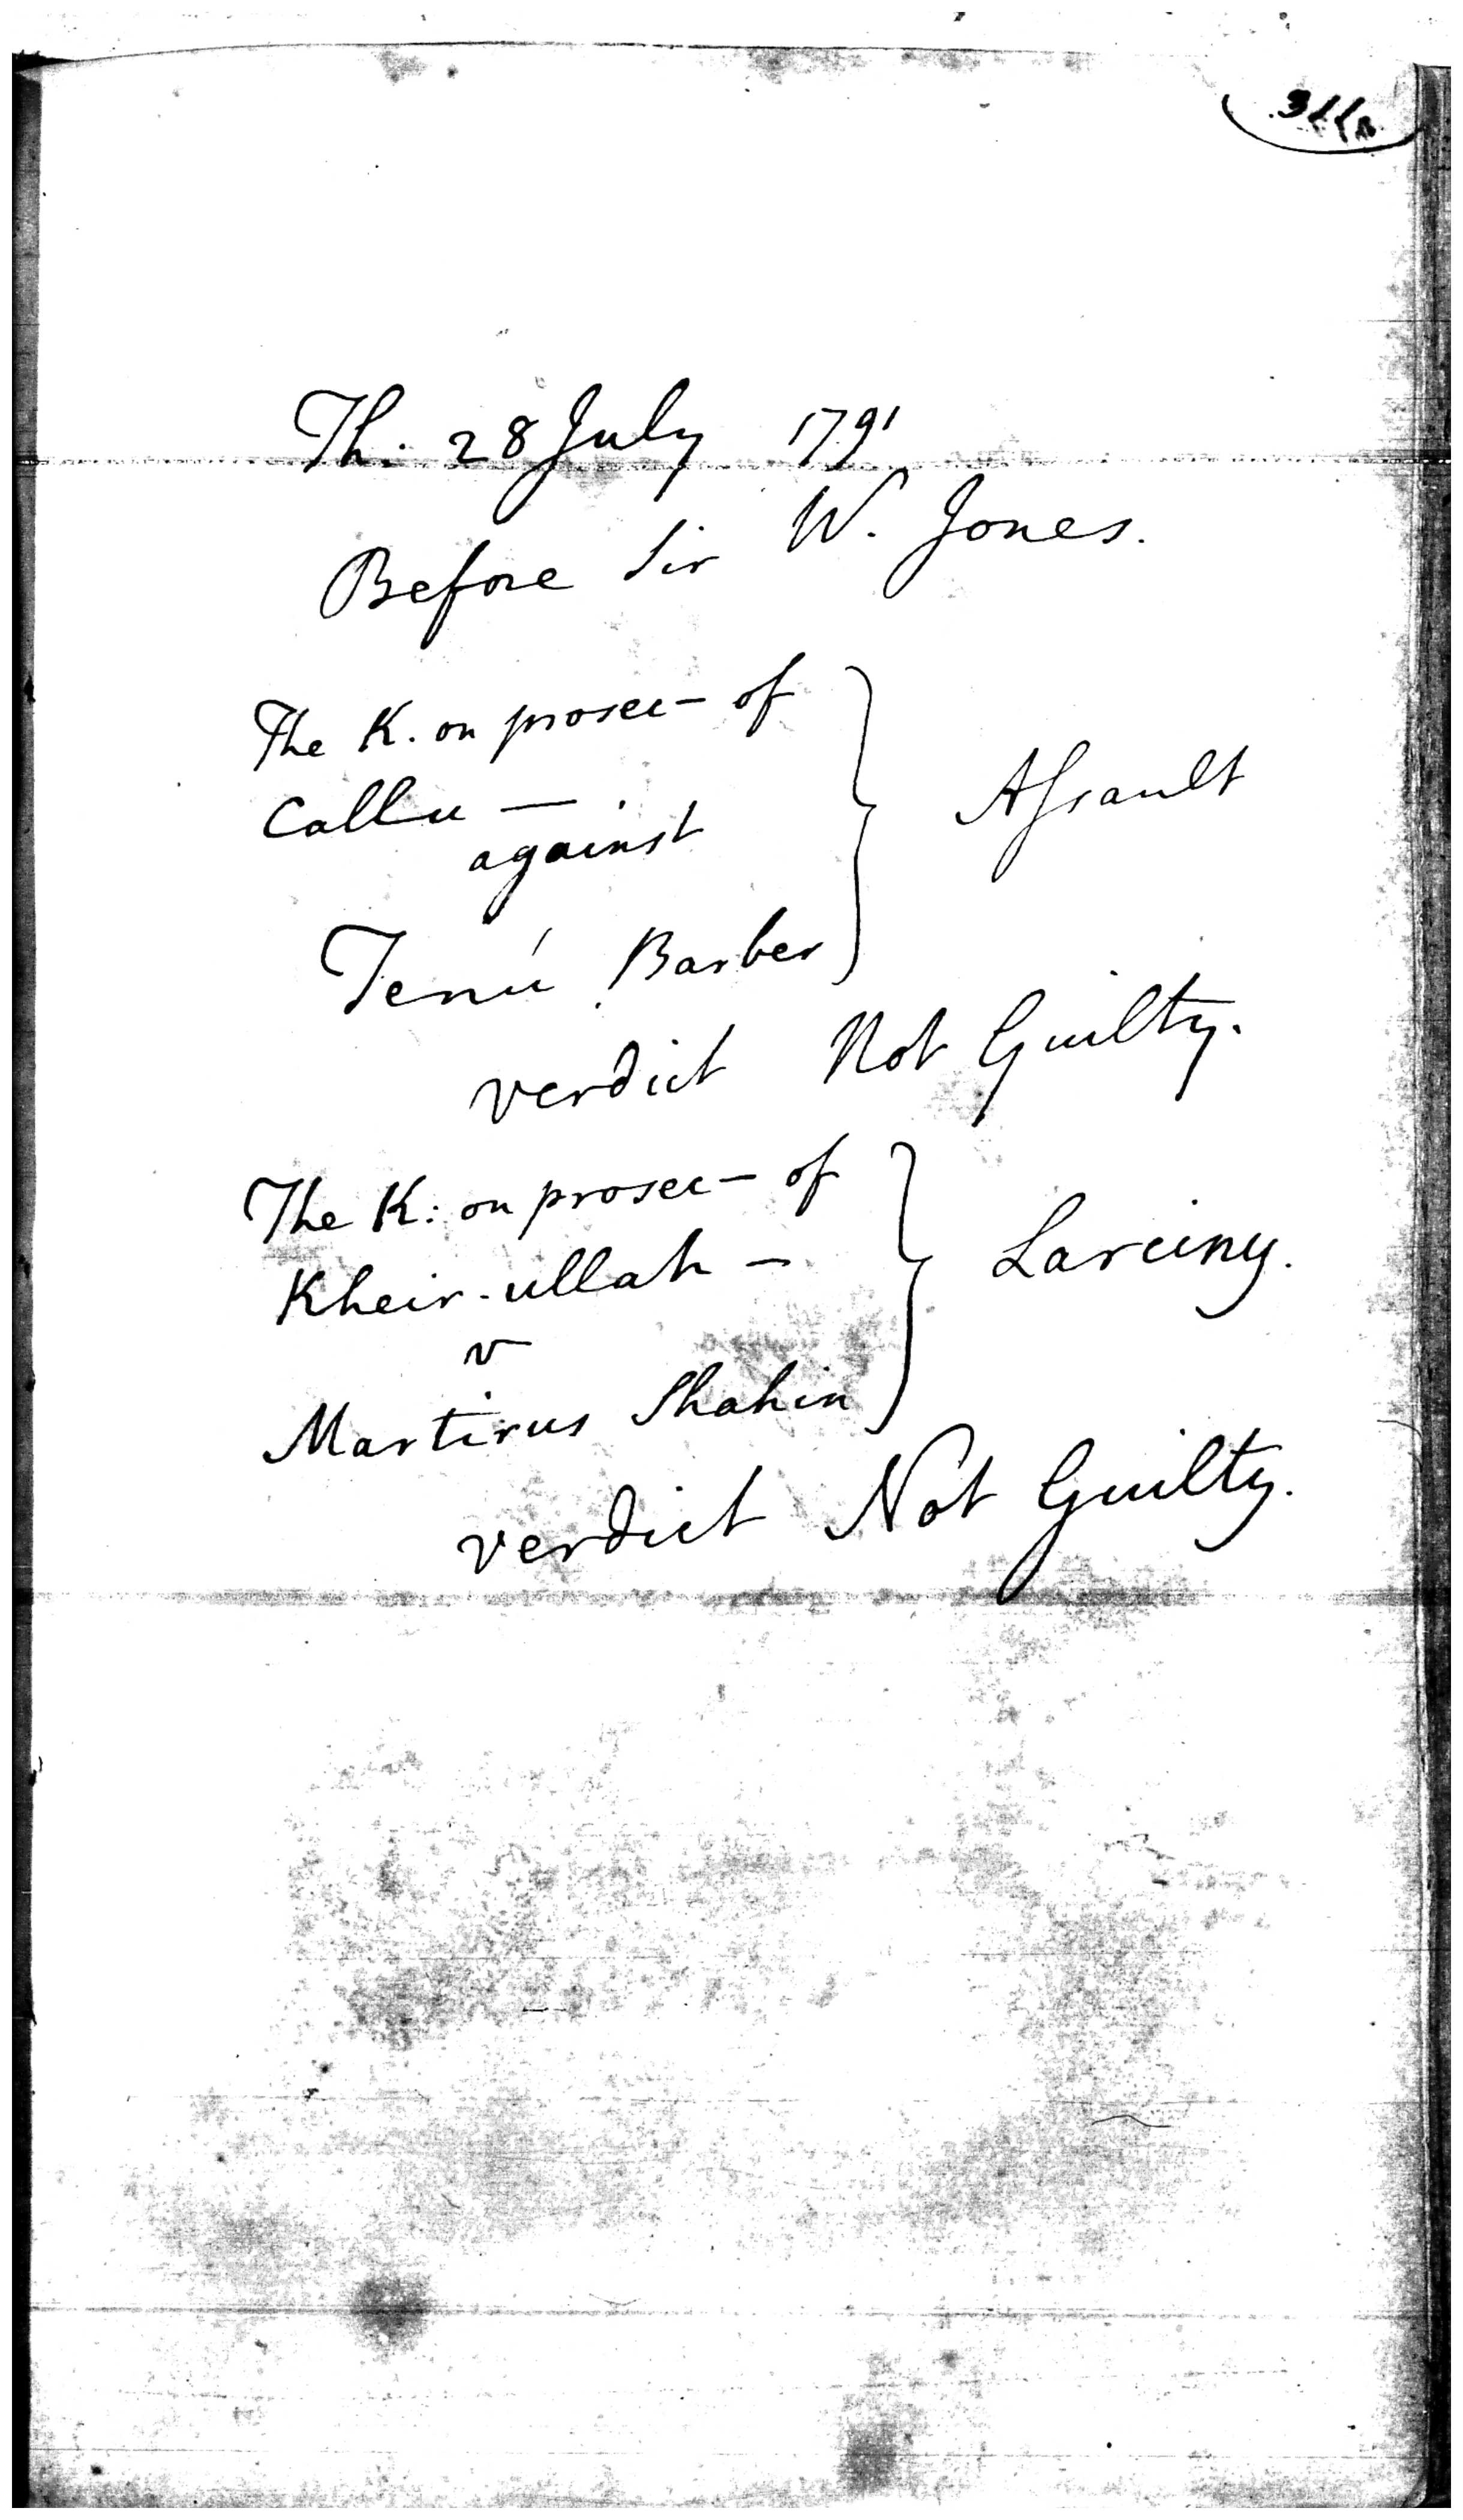 Th. 28 July 1791
Before Sir W. Jones.
The K. on prosec— of
Callu —
against
Assault
Tenú Barber
verdict Not Guilty.
The K: on prosec— of
Kheir-ullah —
Larciny.
v
Martirus Shahin
verdict Not Guilty.